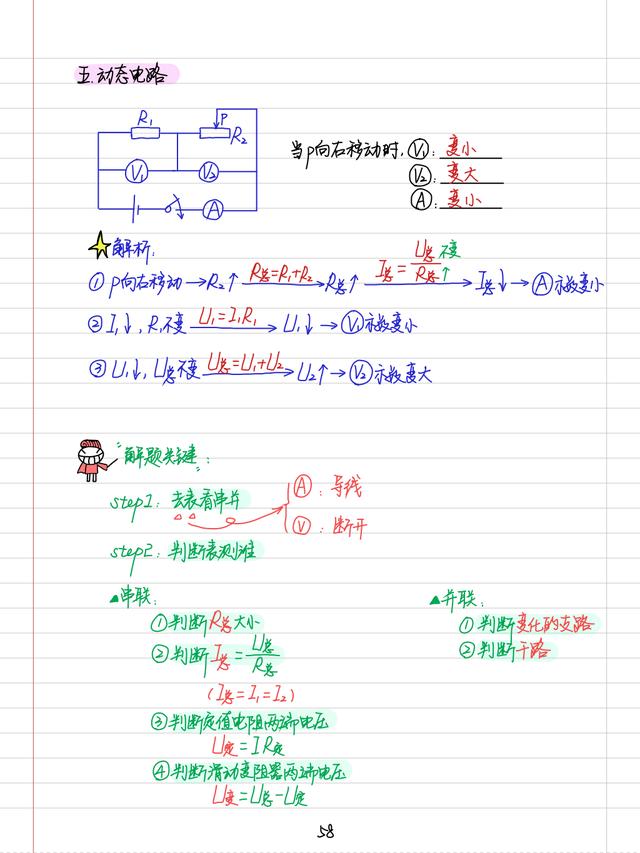 五.动态电路
R₁
P
R₂
V₁
V₂
A
当P向右移动时, V₁: 变小
V₂: 变大
A: 变小
解析:
① P向右移动→R₂↑ R总=R₁+R₂→ R总↑ I总=U总不变/R总↑→ I总↓→A示数变小
② I₁↓, R₁不变 U₁=I₁R₁→ U₁↓→V₁示数变小
③ U₁↓, U总不变 U总=U₁+U₂→ U₂↑→V₂示数变大
"解题关键":
step1: 去表看串并
A: 导线
V: 断开
step2: 判断表测谁
▲串联:
① 判断R总大小
② 判断I总=U总/R总
(I总=I₁=I₂)
③ 判断定值电阻两端电压
U定=IR定
④ 判断滑动变阻器两端电压
U变=U总-U定
▲并联:
① 判断变化的支路
② 判断干路
58